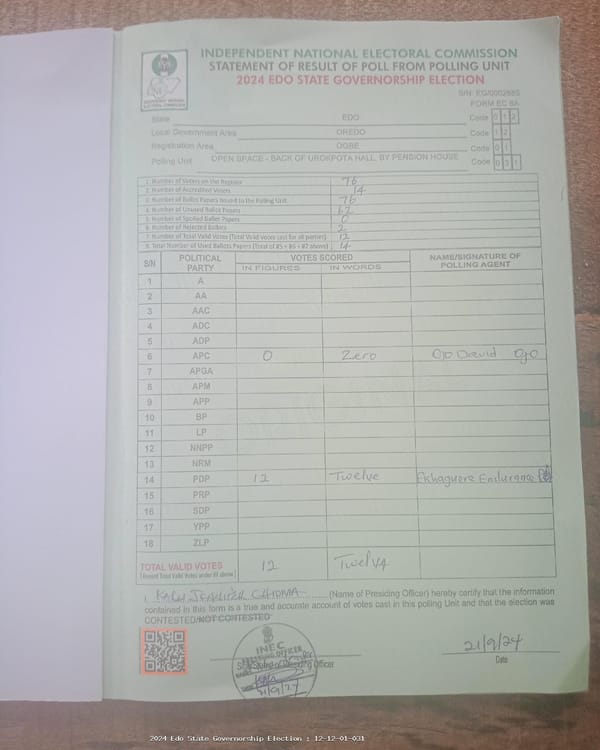 INDEPENDENT NATIONAL ELECTORAL COMMISSION
STATEMENT OF RESULT OF POLL FROM POLLING UNIT
2024 EDO STATE GOVERNORSHIP ELECTION
FORM EC 8A
State EDO Code 0 1 2
Local Government Area OREDO Code 1 2
Registration Area OGBE Code 0 1
Polling Unit OPEN SPACE - BACK OF UROKPOTA HALL, BY PENSION HOUSE Code 0 3 1
1. Number of Voters on the Register 76
2. Number of Accredited Voters 14
3. Number of Ballot Papers Issued to the Polling Unit 76
4. Number of Unused Ballot Papers 62
5. Number of Spoiled Ballot Papers 0
6. Number of Rejected Ballots 2
7. Number of Total Valid Votes (Total Valid Votes cast for all parties) 12
8. Total Number of Used Ballots Papers (Total of #5 + #6 + #7 above) 14
S/N POLITICAL PARTY VOTES SCORED NAME/SIGNATURE OF POLLING AGENT
IN FIGURES IN WORDS
1 A
2 AA
3 AAC
4 ADC
5 ADP
6 APC 0 Zero Ojo David Ojo
7 APGA
8 APM
9 APP
10 BP
11 LP
12 NNPP
13 NRM
14 PDP 12 Twelve Ekhaguere Endurance
15 PRP
16 SDP
17 YPP
18 ZLP
TOTAL VALID VOTES 12 Twelve
I, KALU JENNIFER CHIOMA (Name of Presiding Officer) hereby certify that the information
contained in this form is a true and accurate account of votes cast in this polling Unit and that the election was
CONTESTED/NOT CONTESTED
INEC
21/9/24
Officer
21/9/24
Date
2024 Edo State Governorship Election : 12-12-01-031